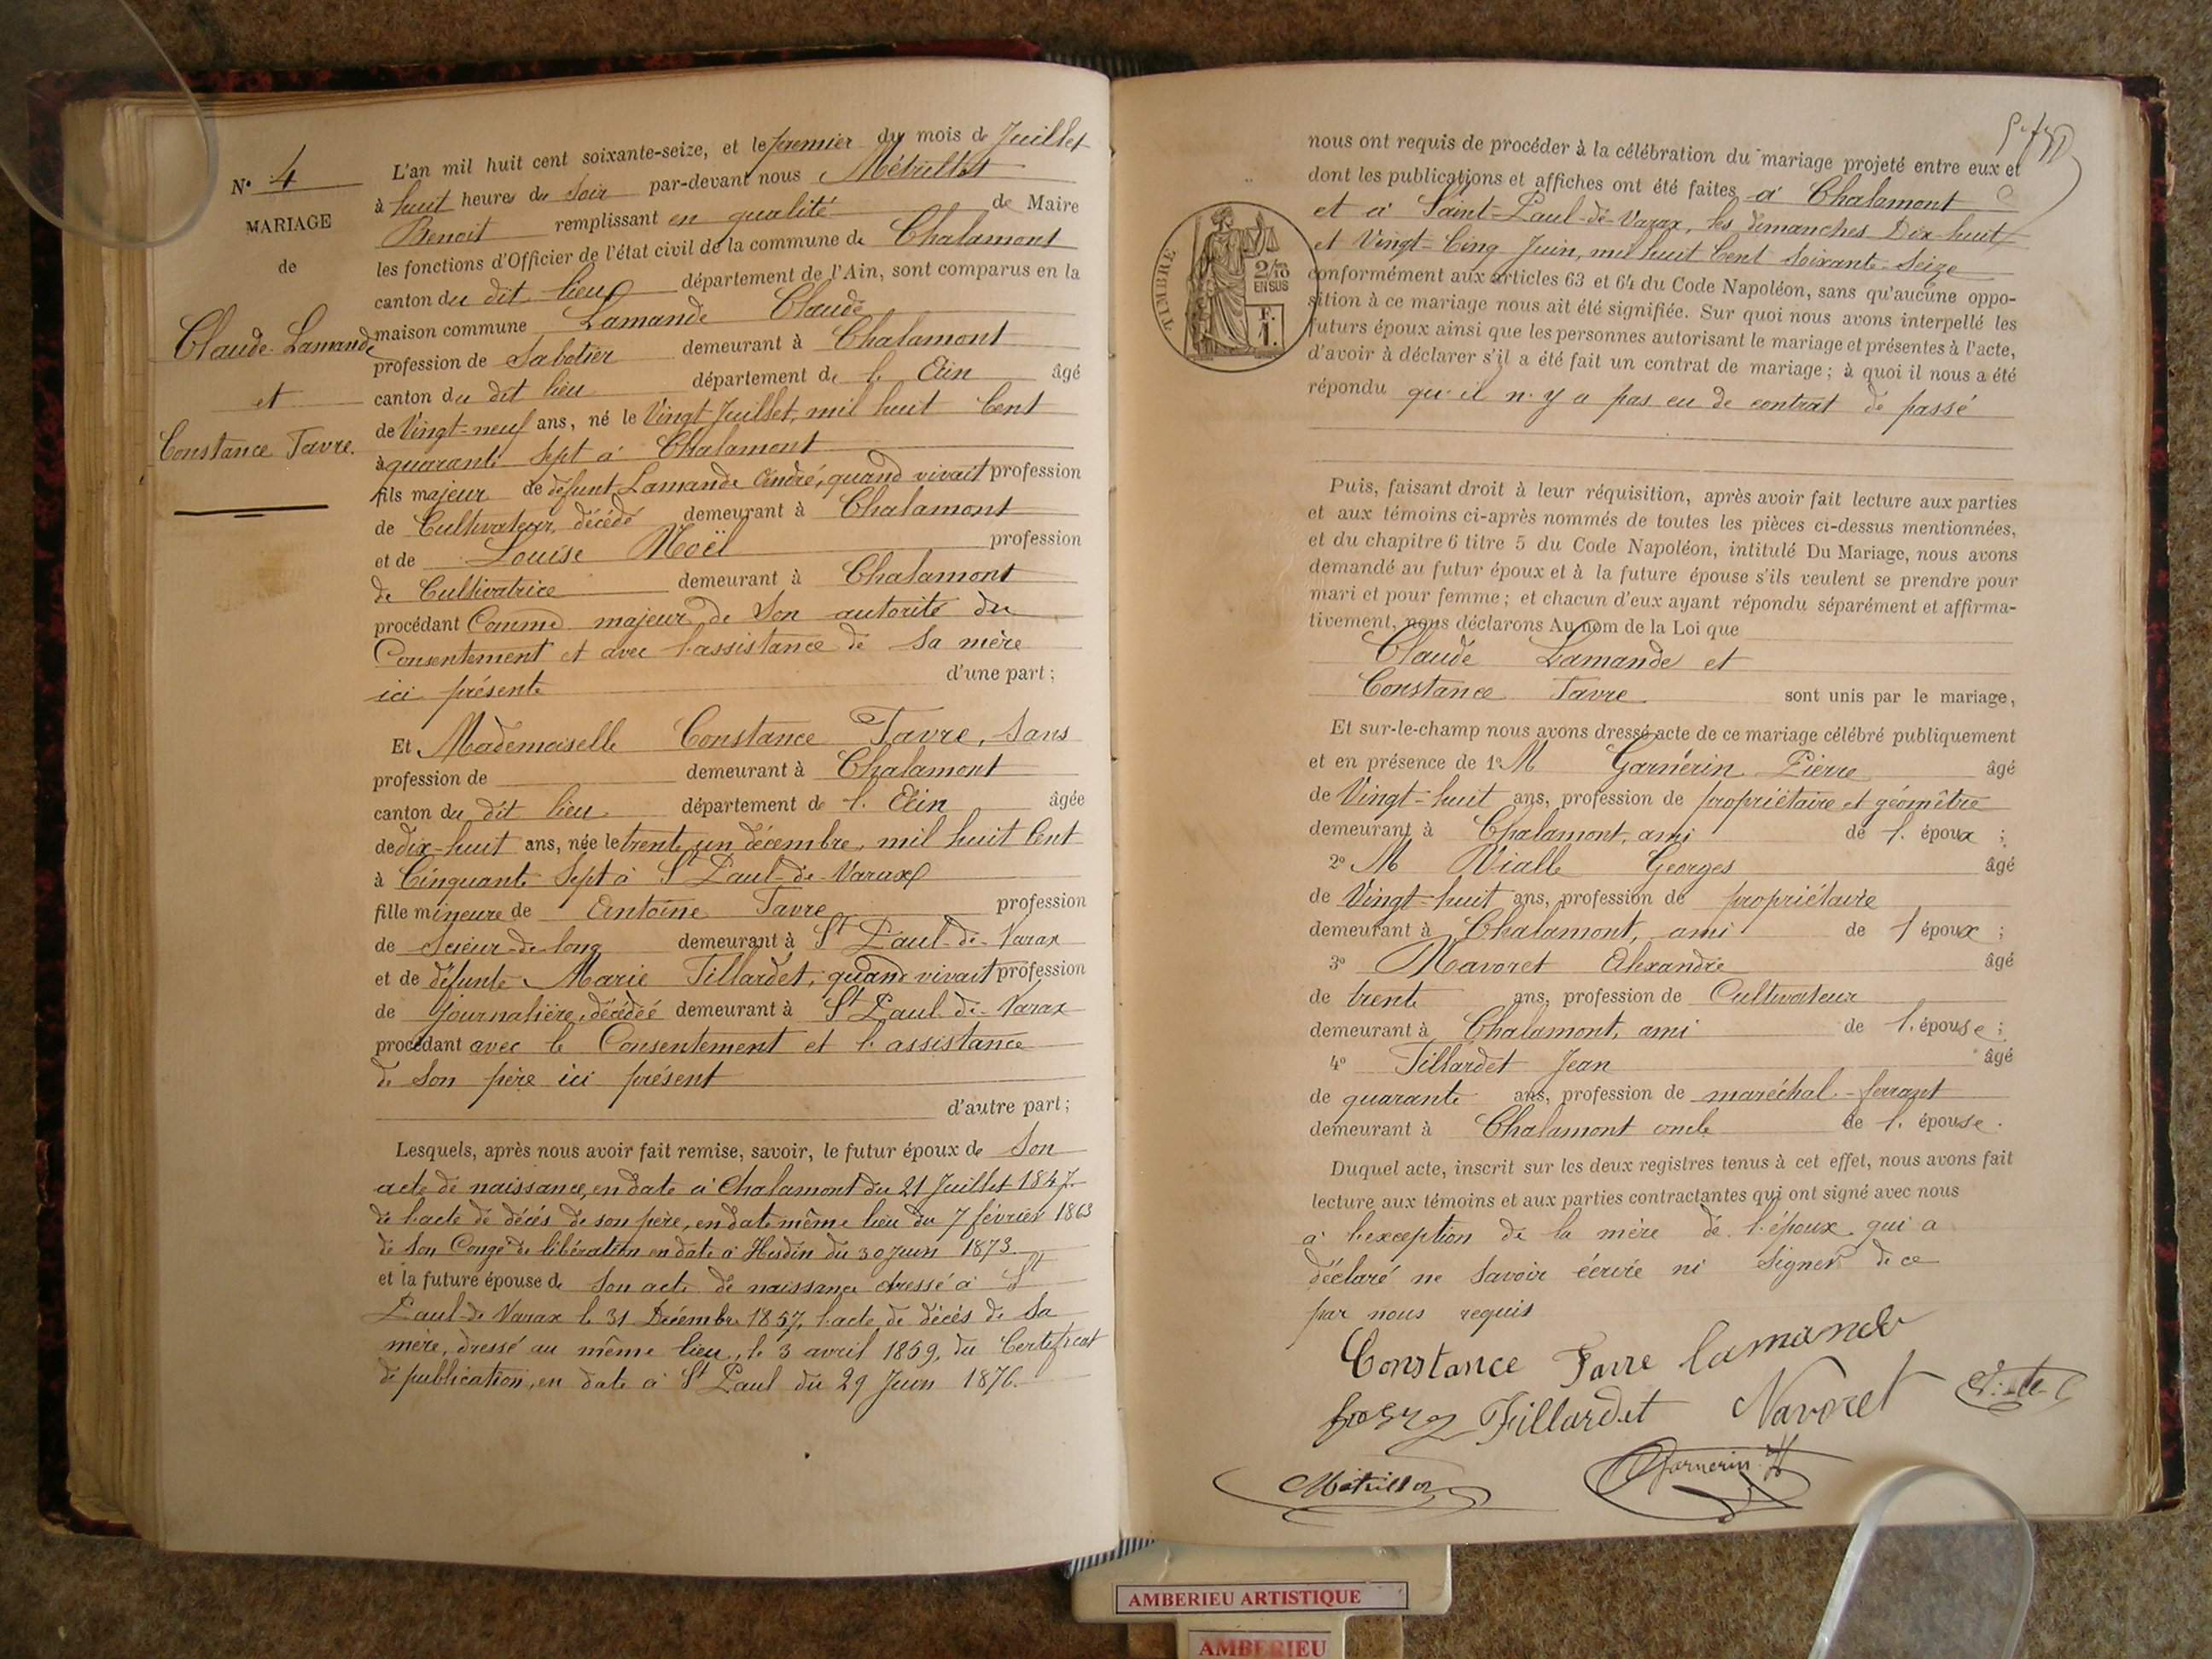 N° 4
MARIAGE
de
Claude Lamande
et
Constance Favre.
L'an mil huit cent soixante-seize, et le premier du mois de Juillet
à huit heures du Soir par-devant nous Métrillot
Benoit remplissant en qualité de Maire
les fonctions d'Officier de l'état civil de la commune de Chalamont
canton du dit lieu département de l'Ain, sont comparus en la
maison commune Lamande Claude
profession de Sabotier demeurant à Chalamont
canton du dit lieu département de l'Ain âgé
de Vingt-neuf ans, né le Vingt Juillet, mil huit Cent
à quarante Sept à Chalamont
fils majeur de défunt Lamande André, quand vivait profession
de Cultivateur, décédé demeurant à Chalamont
et de Louise Noël profession
de Cultivatrice demeurant à Chalamont
procédant Comme majeur de Son autorité du
Consentement et avec l'assistance de Sa mère
ici présente d'une part;
Et Mademoiselle Constance Favre, Sans
profession de demeurant à Chalamont
canton du dit lieu département de l'Ain âgée
de dix-huit ans, née le trente un décembre, mil huit Cent
à Cinquante Sept à St Paul-de-Varax
fille mineure de Antoine Favre profession
de Scieur-de-long demeurant à St Paul-de-Varax
et de défunte Marie Tillardet, quand vivait profession
de Journalière, décédée demeurant à St Paul-de-Varax
procédant avec le Consentement et l'assistance
de Son père ici présent
d'autre part;
Lesquels, après nous avoir fait remise, savoir, le futur époux de Son
acte de naissance, en date à Chalamont du 21 Juillet 1847.
de l'acte de décès de son père, en date même lieu du 7 février 1863
de Son Congé de libération en date à Hesdin du 30 Juin 1873.
et la future épouse de Son acte de naissance dressé à St
Paul-de Varax le 31 Décembre 1857, l'acte de décès de Sa
mère, dressé au même lieu, le 3 avril 1859, du Certificat
de publication, en date à St Paul du 29 Juin 1876.
nous ont requis de procéder à la célébration du mariage projeté entre eux et
dont les publications et affiches ont été faites à Chalamont
et à Saint-Paul-de-Varax, les dimanches Dix-huit
et Vingt-Cinq Juin, mil huit Cent Soixante-Seize
TIMBRE
2/10
EN SUS
F.
1.
conformément aux articles 63 et 64 du Code Napoléon, sans qu'aucune oppo-
sition à ce mariage nous ait été signifiée. Sur quoi nous avons interpellé les
futurs époux ainsi que les personnes autorisant le mariage et présentes à l'acte,
d'avoir à déclarer s'il a été fait un contrat de mariage; à quoi il nous a été
répondu qu'il n'y a pas eu de contrat de passé
Puis, faisant droit à leur réquisition, après avoir fait lecture aux parties
et aux témoins ci-après nommés de toutes les pièces ci-dessus mentionnées,
et du chapitre 6 titre 5 du Code Napoléon, intitulé Du Mariage, nous avons
demandé au futur époux et à la future épouse s'ils veulent se prendre pour
mari et pour femme; et chacun d'eux ayant répondu séparément et affirma-
tivement, nous déclarons Au nom de la Loi que
Claude Lamande et
Constance Favre sont unis par le mariage,
Et sur-le-champ nous avons dressé acte de ce mariage célébré publiquement
et en présence de 1° M Garnerin Pierre âgé
de Vingt-huit ans, profession de propriétaire et géomètre
demeurant à Chalamont, ami de l'époux;
2° M Vialle Georges âgé
de Vingt-huit ans, profession de propriétaire
demeurant à Chalamont, ami de l'époux;
3° Navoret Alexandre âgé
de trente ans, profession de Cultivateur
demeurant à Chalamont, ami de l'épouse;
4° Tillardet Jean âgé
de quarante ans, profession de maréchal-ferrant
demeurant à Chalamont oncle de l'épouse.
Duquel acte, inscrit sur les deux registres tenus à cet effet, nous avons fait
lecture aux témoins et aux parties contractantes qui ont signé avec nous
à l'exception de la mère de l'époux qui a
déclaré ne Savoir écrire ni Signer de ce
par nous requis
Constance Favre Lamande
Tillardet Navoret
Métrillot Garnerin
AMBERIEU ARTISTIQUE
AMBERIEU